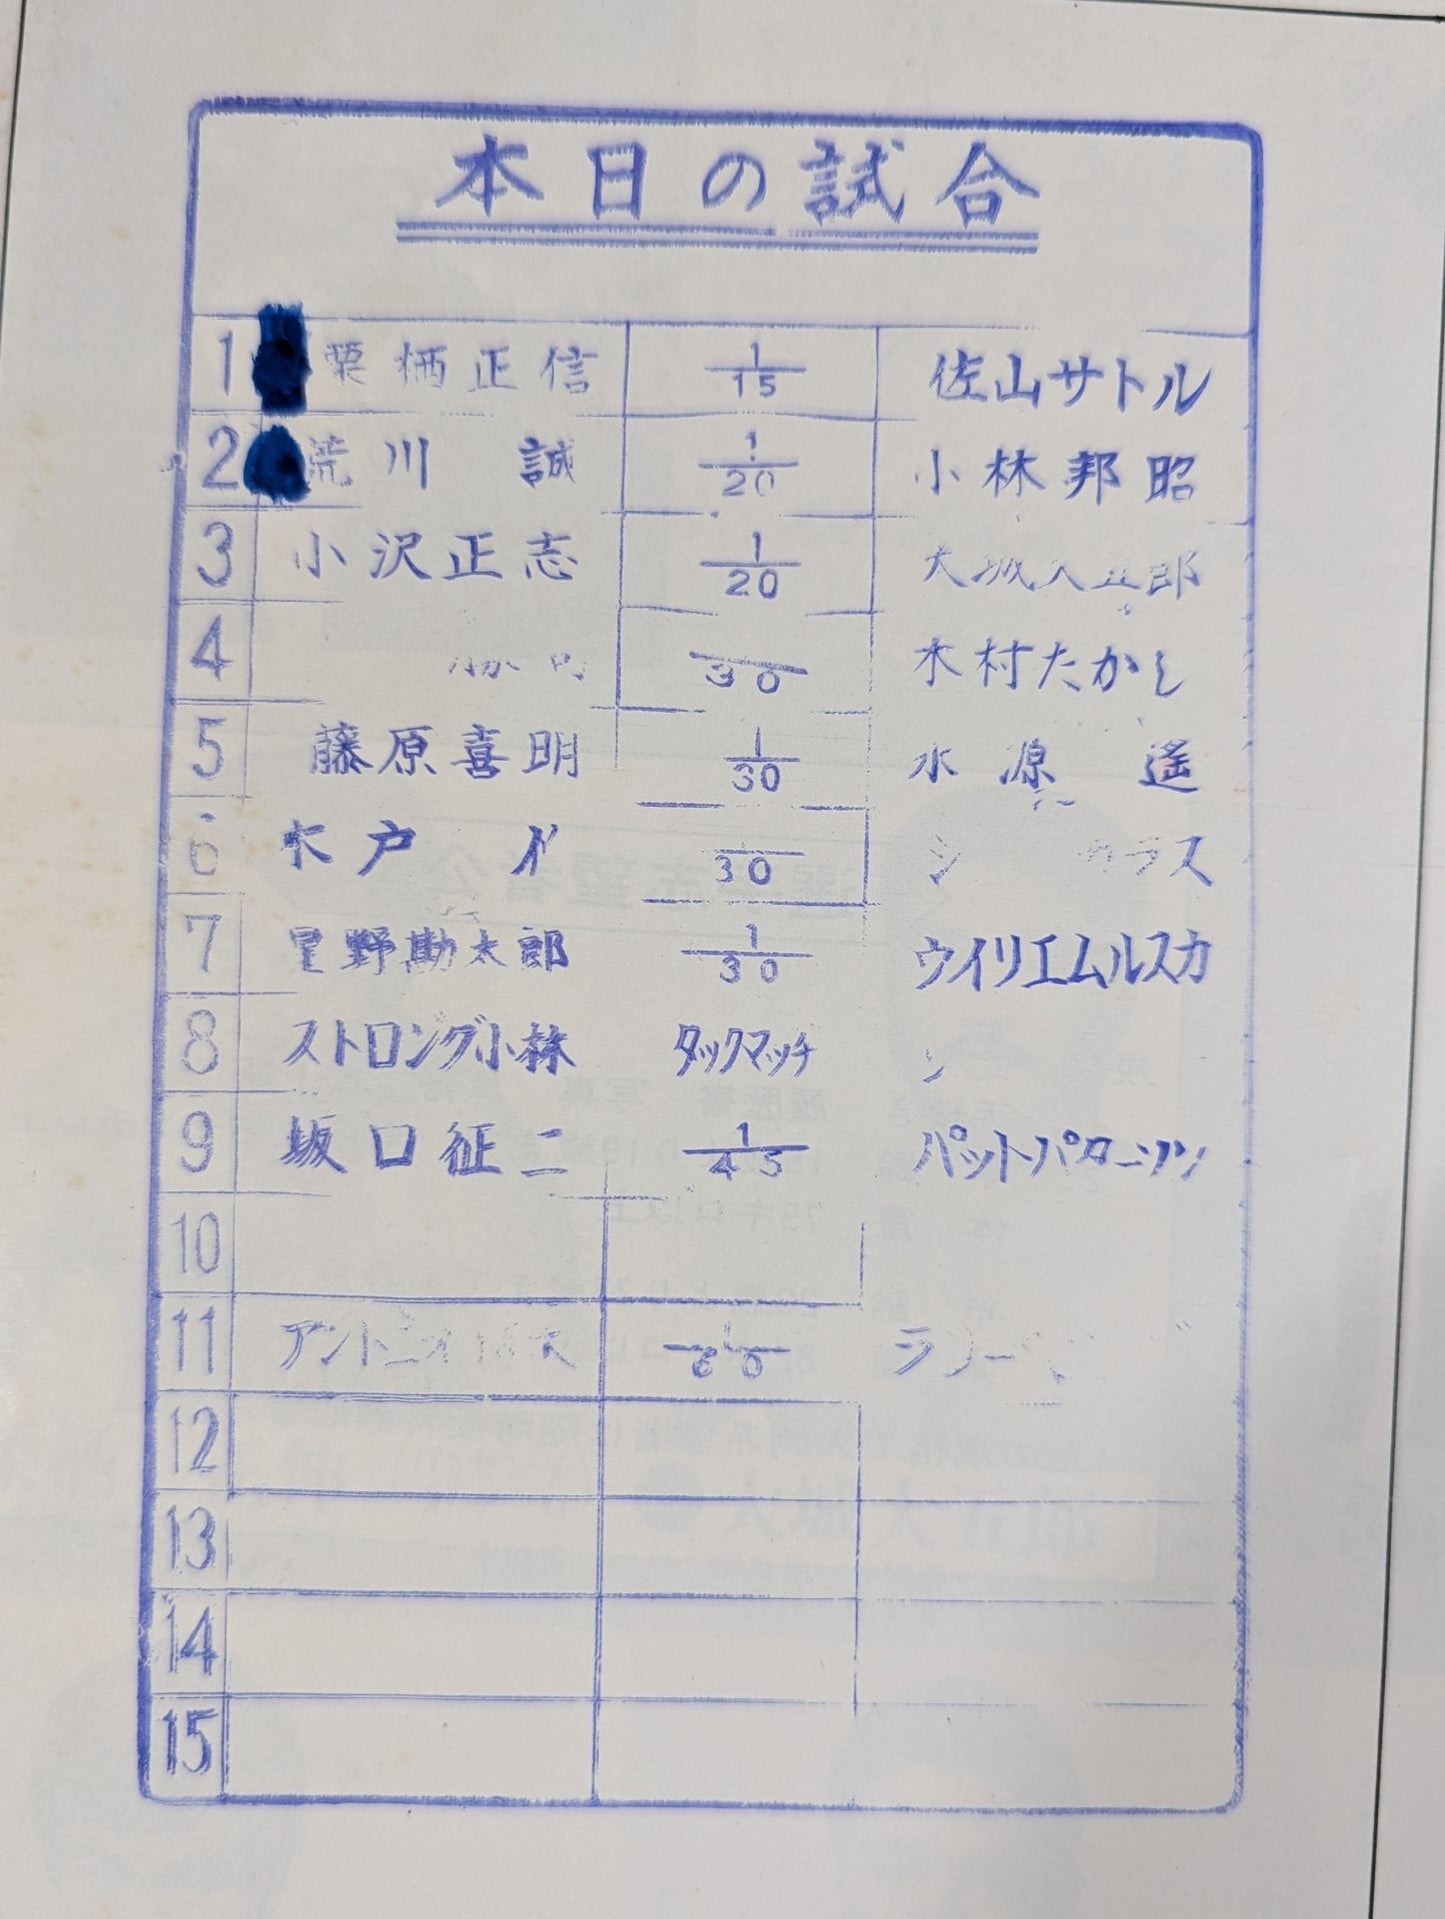 本日の試合
1 栗栖正信 1/15 佐山サトル
2 荒川 誠 1/20 小林邦昭
3 小沢正志 1/20 大城大五郎
4 30 木村たかし
5 藤原喜明 1/30 永源 遙
6 木戸 30
7 星野勘太郎 1/30 ウイリエムルスカ
8 ストロング小林 タックマッチ
9 坂口征二 1/45 パットパターソン
10
11 アントニオ 1/60
12
13
14
15